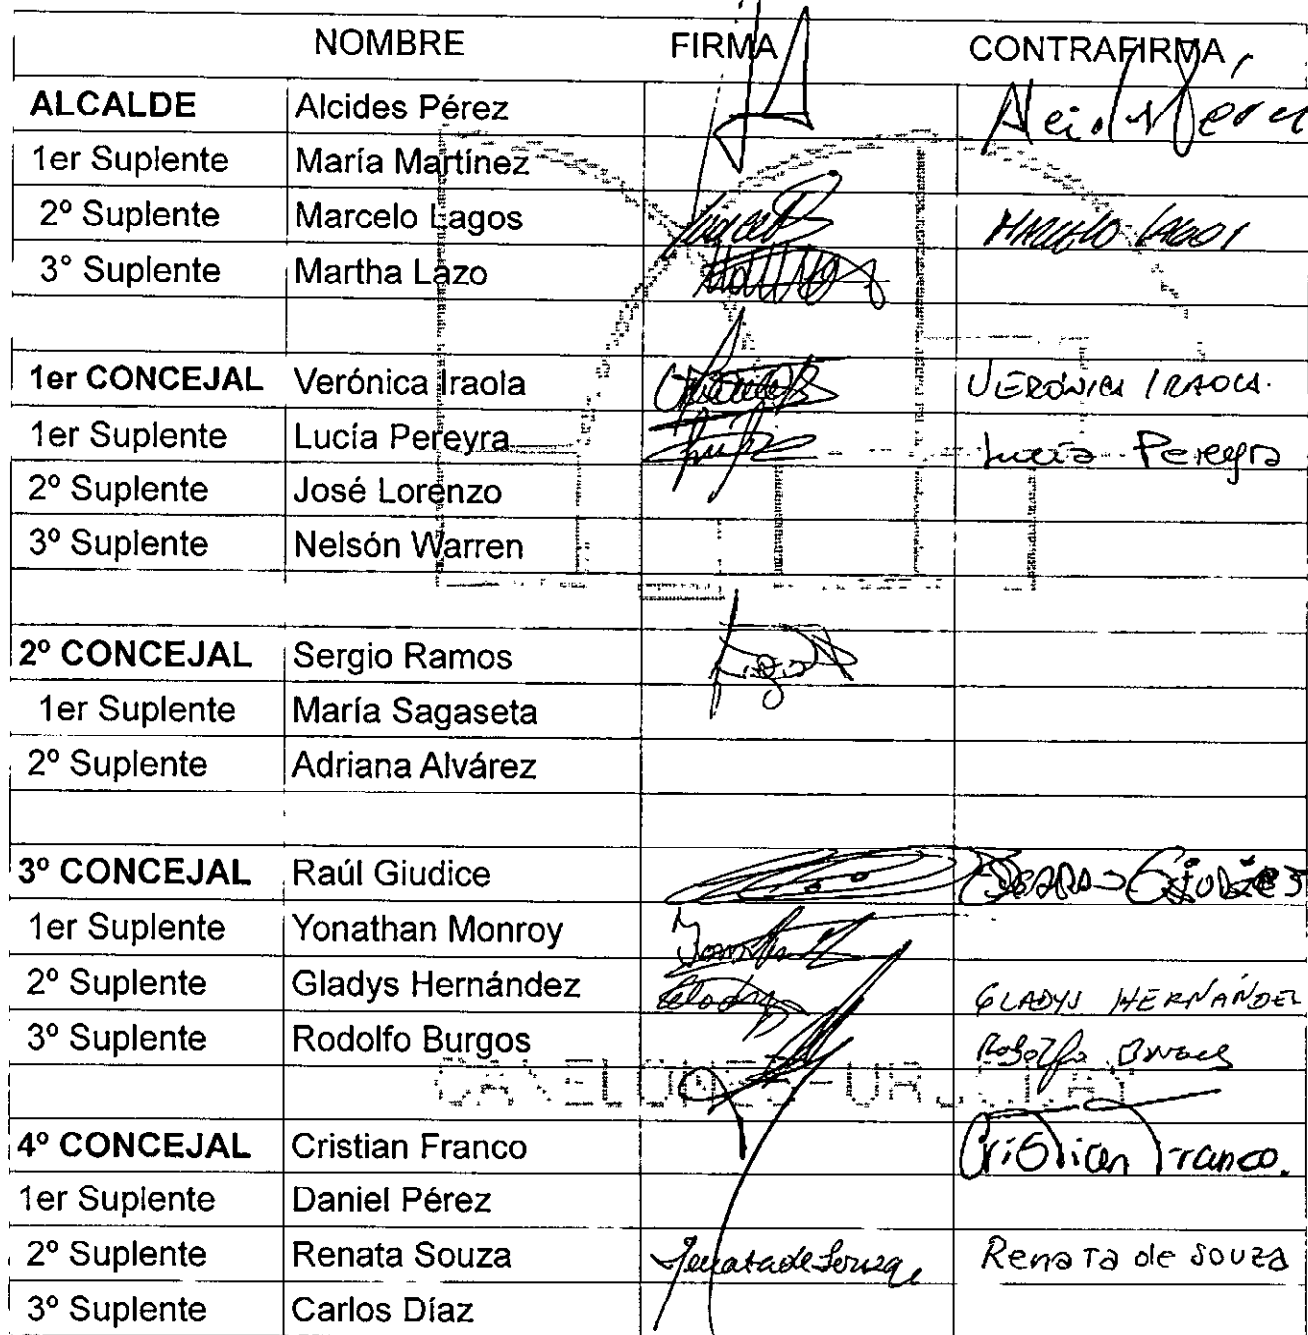 NOMBRE FIRMA CONTRAFIRMA
ALCALDE Alcides Pérez
1er Suplente María Martínez
2º Suplente Marcelo Lagos MARCELO LAGOS
3° Suplente Martha Lazo
1er CONCEJAL Verónica Iraola VERÓNICA IRAOLA.
1er Suplente Lucía Pereyra Lucía Pereyra
2º Suplente José Lorenzo
3º Suplente Nelsón Warren
2º CONCEJAL Sergio Ramos
1er Suplente María Sagaseta
2º Suplente Adriana Alvárez
3º CONCEJAL Raúl Giudice
1er Suplente Yonathan Monroy
2º Suplente Gladys Hernández GLADYS HERNÁNDEZ
3º Suplente Rodolfo Burgos Rodolfo Burgos
CANELONES-URUGUAY
4º CONCEJAL Cristian Franco Cristian Franco.
1er Suplente Daniel Pérez
2º Suplente Renata Souza Renata de Souza Renata de Souza
3º Suplente Carlos Díaz